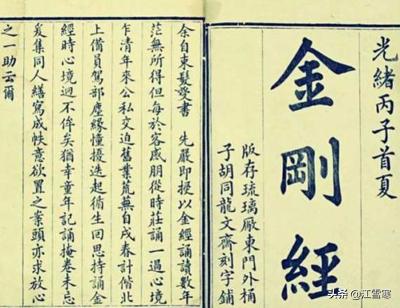 光緒丙子首夏
金剛經
版存琉璃厰東門外桶
子胡同龍文齋刻字鋪
余自束髮受書 先嚴即授以金經誦讀數年
茫無所得但每於客感朋從時莊誦一過心境
乍清年來公私交迫舊業荒蕪自戌春計偕北
上備員駕部塵緣憧擾迭起循生回思持誦金
經時心境迥不侔矣猶幸童年記誦掩卷未忘
爰集同人繕寫成帙意欲置之案頭亦求放心
之一助云爾
头条@江雪寒